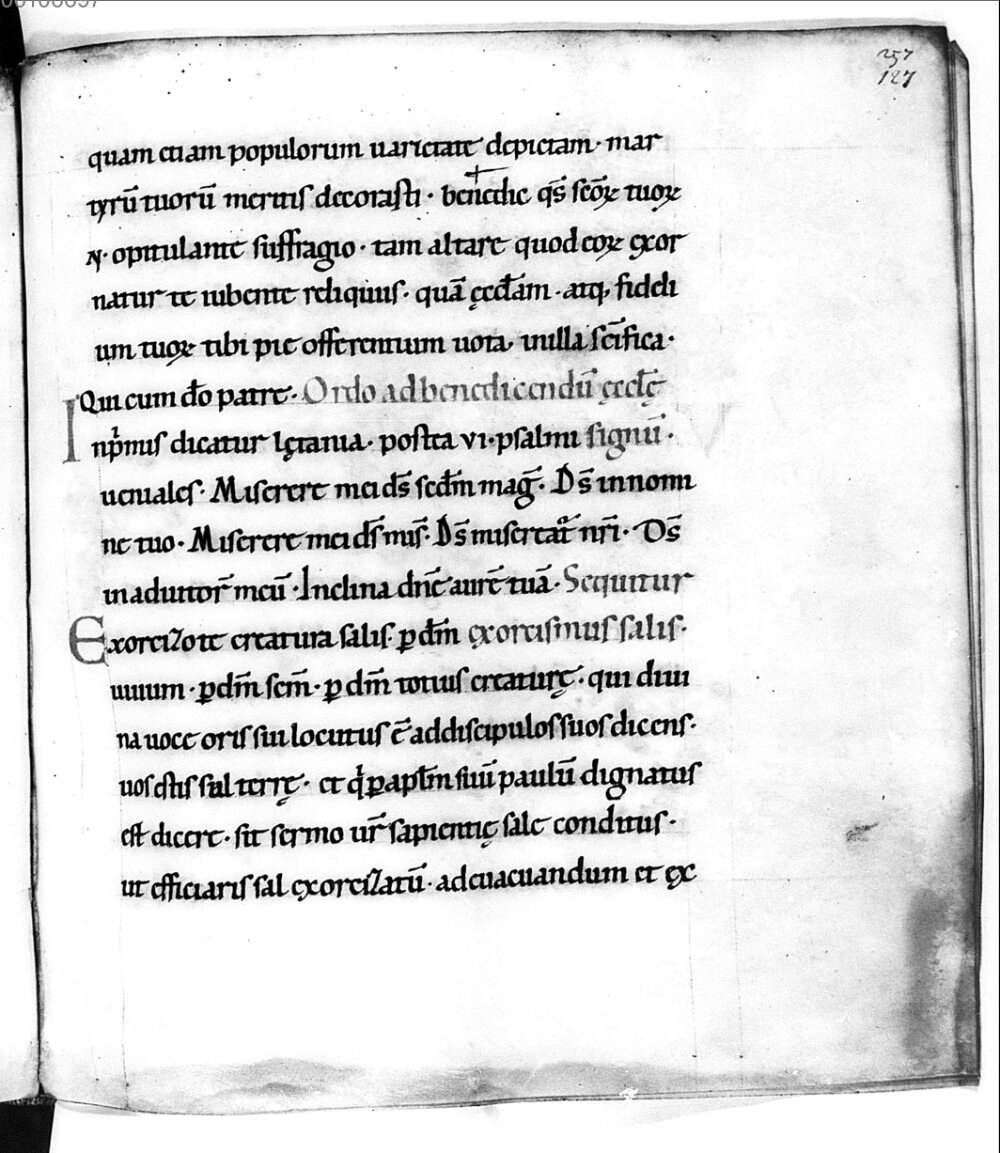 257
127
quam etiam populorum uarietate depictam · mar
tyrū tuorū meritis decorasti · benedic qs̄ scōꝝ tuoꝝ
N · opitulante suffragio · tam altare quod eoꝝ ęxor
natur te iubente reliquiis · quā ęcctām · atq; fideli
um tuoꝝ tibi pie offerentium uota · in illa scīfica ·
Qui cum dō patre · Ordo ad benedicendū ęcctę
Inpͥmis dicatur lętania · postea VI · psalmi signū ·
uenuales · Miserere mei ds̄ scdm̄ mag̅ · Ds̄ in nomi
ne tuo · Miserere mei ds̄ mis̄ · Ds̄ misereat̄ nr̄i · Ds̄
in adiutor̄ meū · Inclina dn̄e aurē tuā · Sequitur
Exorcizo te creatura salis · ꝑ dm̄ ęxorcismus salis ·
uiuum · ꝑ dm̄ scm̄ · ꝑ dm̄ totius creaturę · qui diui
na uoce oris sui locutus ē ad discipulos suos dicens ·
uos estis sal terrę · et qͥ ꝑ aptm̄ suū paulū dignatus
est dicere · sit sermo ur̄ sapientię sale conditus ·
ut efficiaris sal ęxorcizatū · ad euacuandum et ęx